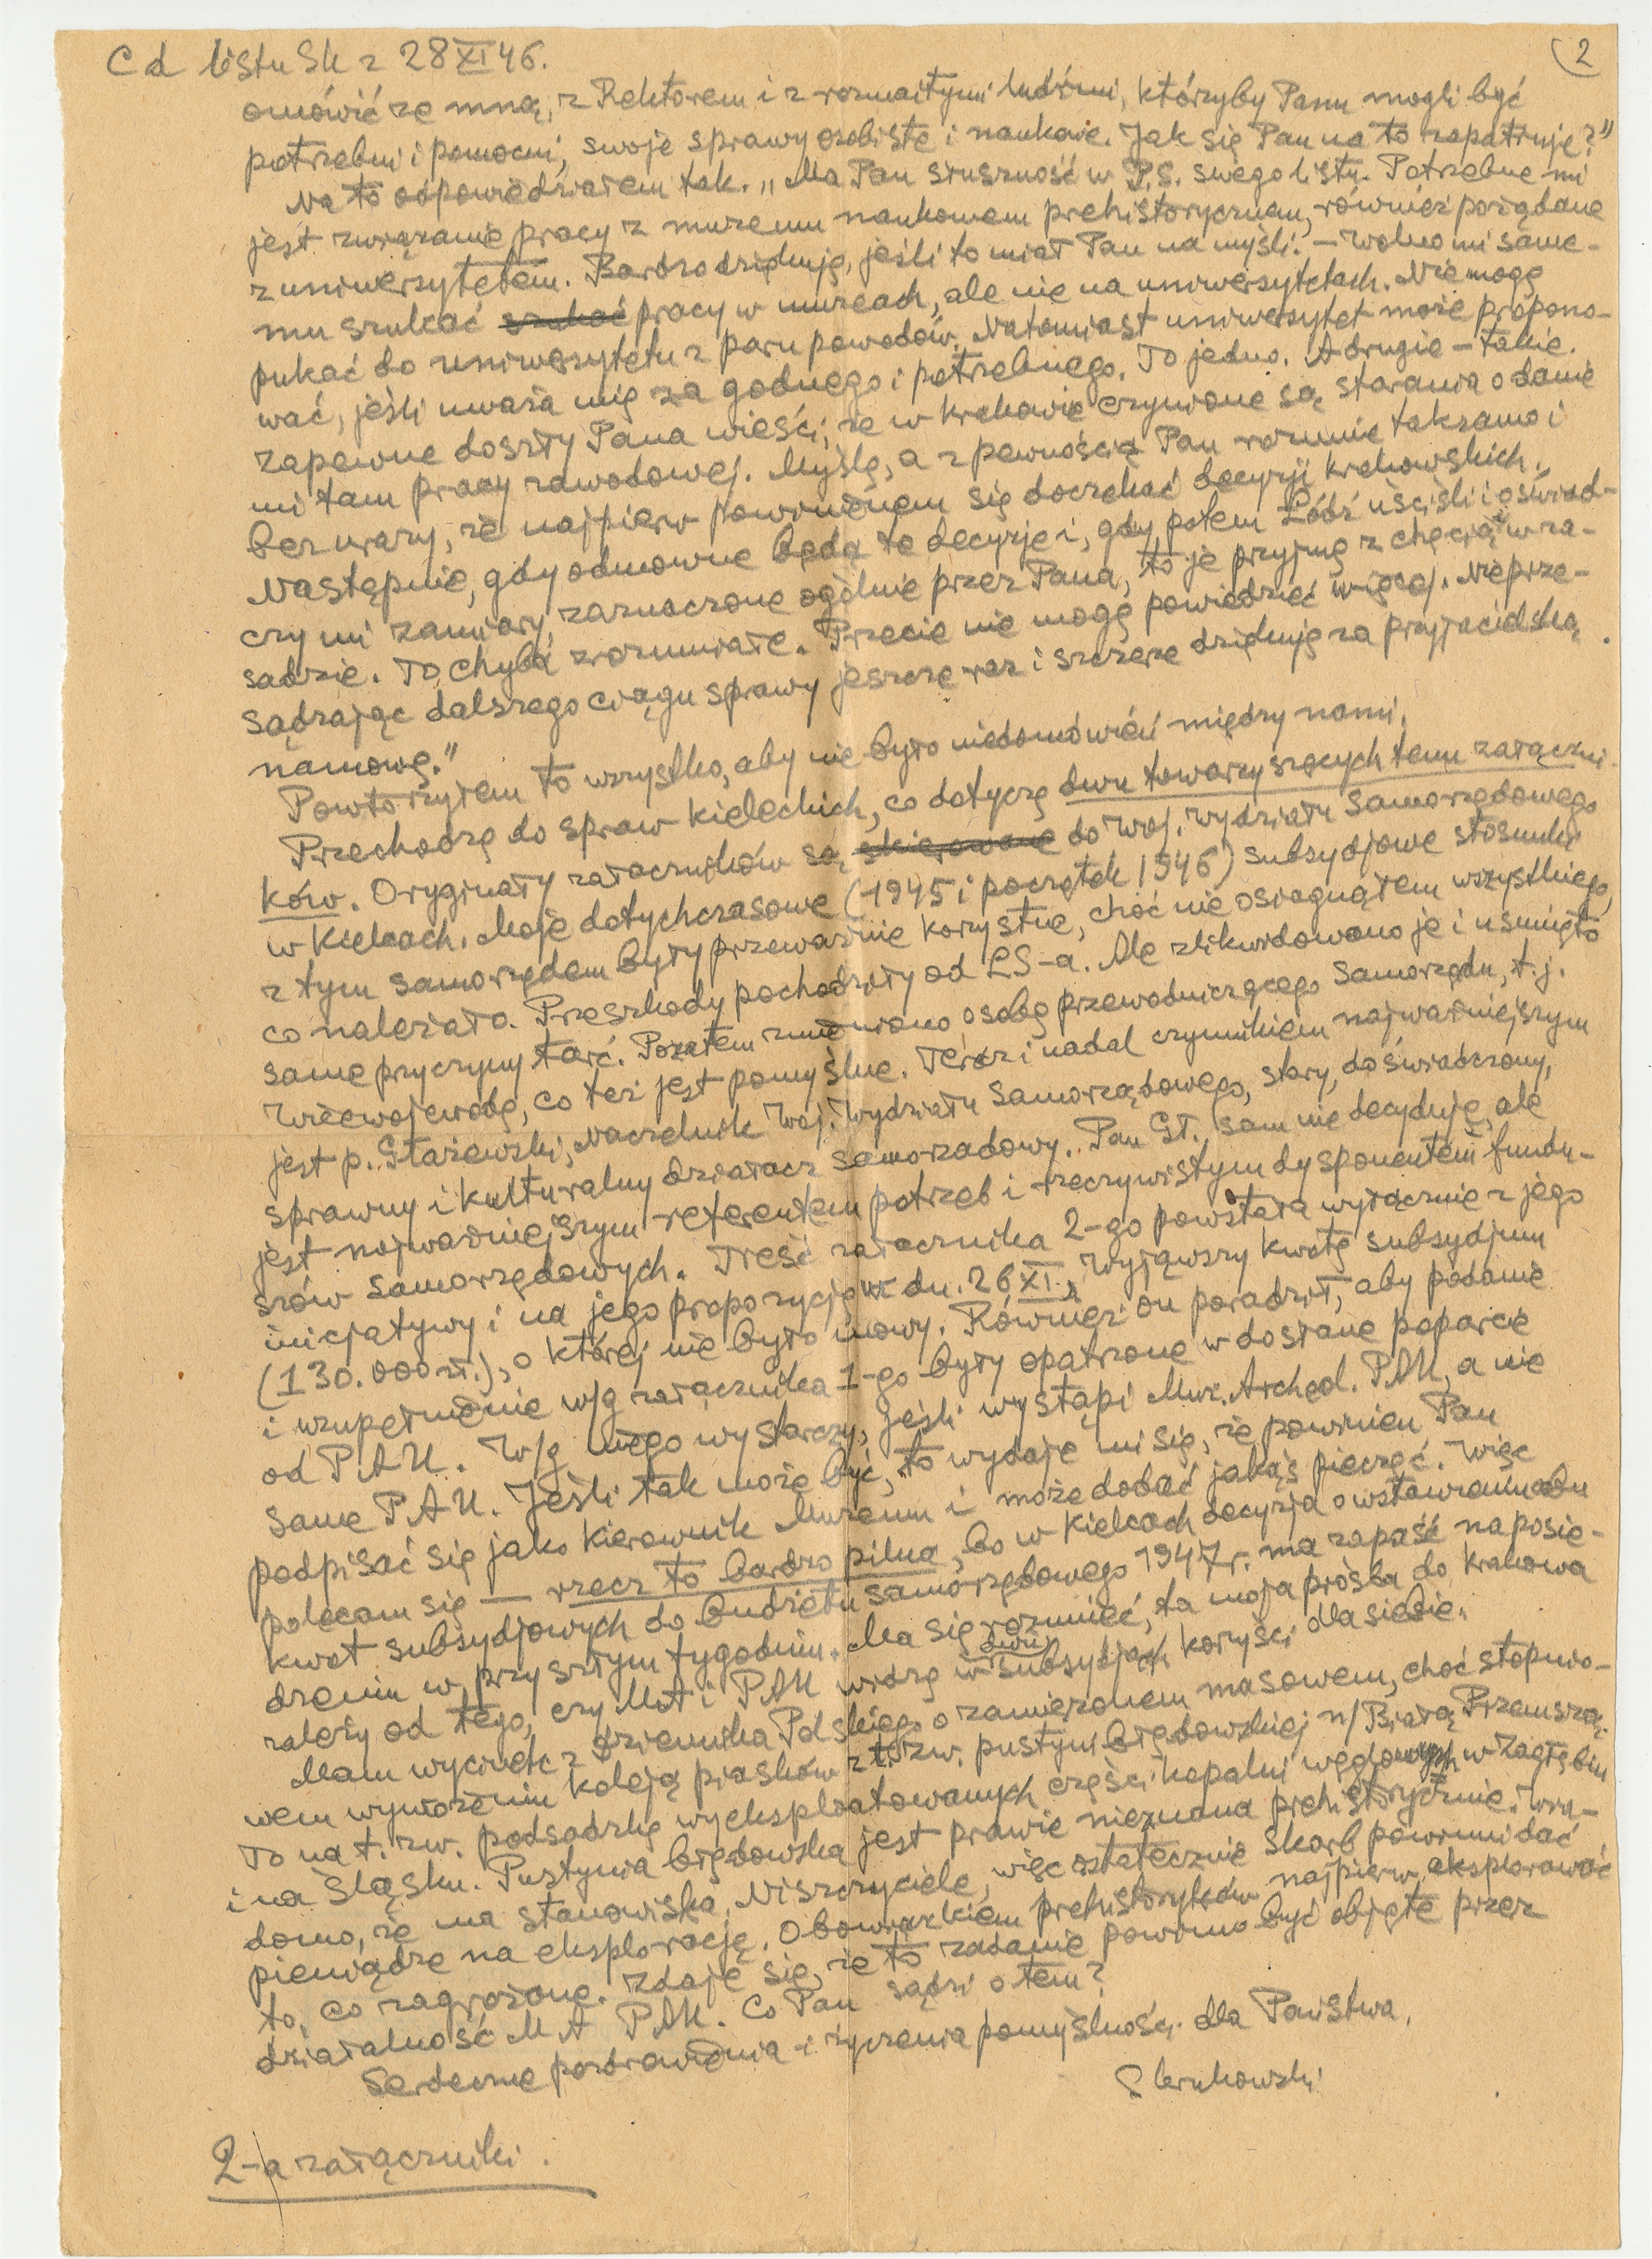 C d listu SK z 28 XI 46.
2
omówić ze mną, z Rektorem i z rozmaitymi ludźmi, którzyby Panu mogli być
potrzebni i pomocni, swoje sprawy osobiste i naukowe. Jak się Pan na to zapatruje?"
Na to odpowiedziałem tak. „Ma Pan słuszność w P.S. swego listu. Potrzebne mi
jest związanie pracy z muzeum naukowem prehistorycznem, również pożądane
z uniwersytetem. Bardzo dziękuję, jeśli to miał Pan na myśli. – Wolno mi same-
mu szukać szukać pracy w muzeach, ale nie na uniwersytetach. Nie mogę
pukać do uniwersytetu z paru powodów. Natomiast uniwersytet może propono-
wać, jeśli uważa mię za godnego i potrzebnego. To jedno. A drugie – takie.
Zapewne doszły Pana wieści, że w Krakowie czynione są starania o danie
mi tam pracy zawodowej. Myślę, a z pewnością Pan rozumie taksamo i
bez urazy, że najpierw powinienem się doczekać decyzji krakowskich.
Następnie, gdy odmowne będą te decyzje i, gdy potem Łódź uściśli i oświad-
czy mi zamiary, zaznaczone ogólnie przez Pana, to je przyjmę z chęcią w za-
sadzie. To chyba zrozumiałe. Przecie nie mogę powiedzieć więcej. Nie prze-
sądzając dalszego ciągu sprawy jeszcze raz i szczerze dziękuję za przyjacielską
namowę."
Powtórzyłem to wszystko, aby nie było niedomówień między nami.
Przechodzę do spraw kieleckich, co dotyczę dwu towarzyszących temu załączni-
ków. Oryginały załączników są skierowane do Woj. Wydziału Samorządowego
w Kielcach. Moje dotychczasowe (1945 i początek 1946) subsydjowe stosunki
z tym samorządem były przeważnie korzystne, choć nie osiągnąłem wszystkiego,
co należało. Przeszkody pochodziły od LS-a. Ale zlikwidowano je i usunięto
same przyczyny tarć. Pozatem zmieniono osobę przewodniczącego Samorządu, t.j.
Wicewojewodę, co też jest pomyślne. Teraz i nadal czynnikiem najważniejszym
jest p. Głażewski, Naczelnik Woj. Wydziału Samorządowego, stary, doświadczony,
sprawny i kulturalny działacz samorządowy. Pan Gł. sam nie decyduje, ale
jest najważniejszym referentem potrzeb i rzeczywistym dysponentem fundu-
szów samorządowych. Treść załącznika 2-go powstała wyłącznie z jego
inicjatywy i na jego propozycję w dn. 26 XI., wyjąwszy kwotę subsydjum
(130.000 zł.), o której nie było mowy. Również on poradził, aby podanie
i uzupełnienie w/g załącznika 1-go były opatrzone w dosłane poparcie
od PAU. W/g niego wystarczy, jeśli wystąpi Muz. Archeol. PAU, a nie
same PAU. Jeśli tak może być, to wydaje mi się, że powinien Pan
podpisać się jako Kierownik Muzeum i może dodać jakąś pieczęć. Więc
polecam się — rzecz to bardzo pilna, bo w Kielcach decyzja o wstawieniu obu
kwot subsydjowych do budżetu samorządowego 1947 r. ma zapaść na posie-
dzeniu w przyszłym tygodniu. Ma się rozumieć, ta moja prośba do Krakowa
zależy od tego, czy MA i PAU widzą w dwu subsydjach korzyści dla siebie.
Mam wycinek z Dziennika Polskiego o zamierzonem masowem, choć stopnio-
wem wywożeniu koleją piasków z t.zw. pustyni błędowskiej n/Białą Przemszą.
To na t.zw. podsadzkę wyeksploatowanych części kopalni węglowych w Zagłębiu
i na Śląsku. Pustynia błędowska jest prawie nieznana prehistorycznie. Wia-
domo, że ma stanowiska. Niszczyciele, więc ostatecznie Skarb powinni dać
pieniądze na eksplorację. Obowiązkiem prehistoryków najpierw eksplorować
to, co zagrożone. Zdaje się, że to zadanie powinno być objęte przez
działalność MA PAU. Co Pan sądzi o tem?
Serdeczne pozdrowienia i życzenia pomyślności dla Państwa.
S Krukowski
2-a załączniki.